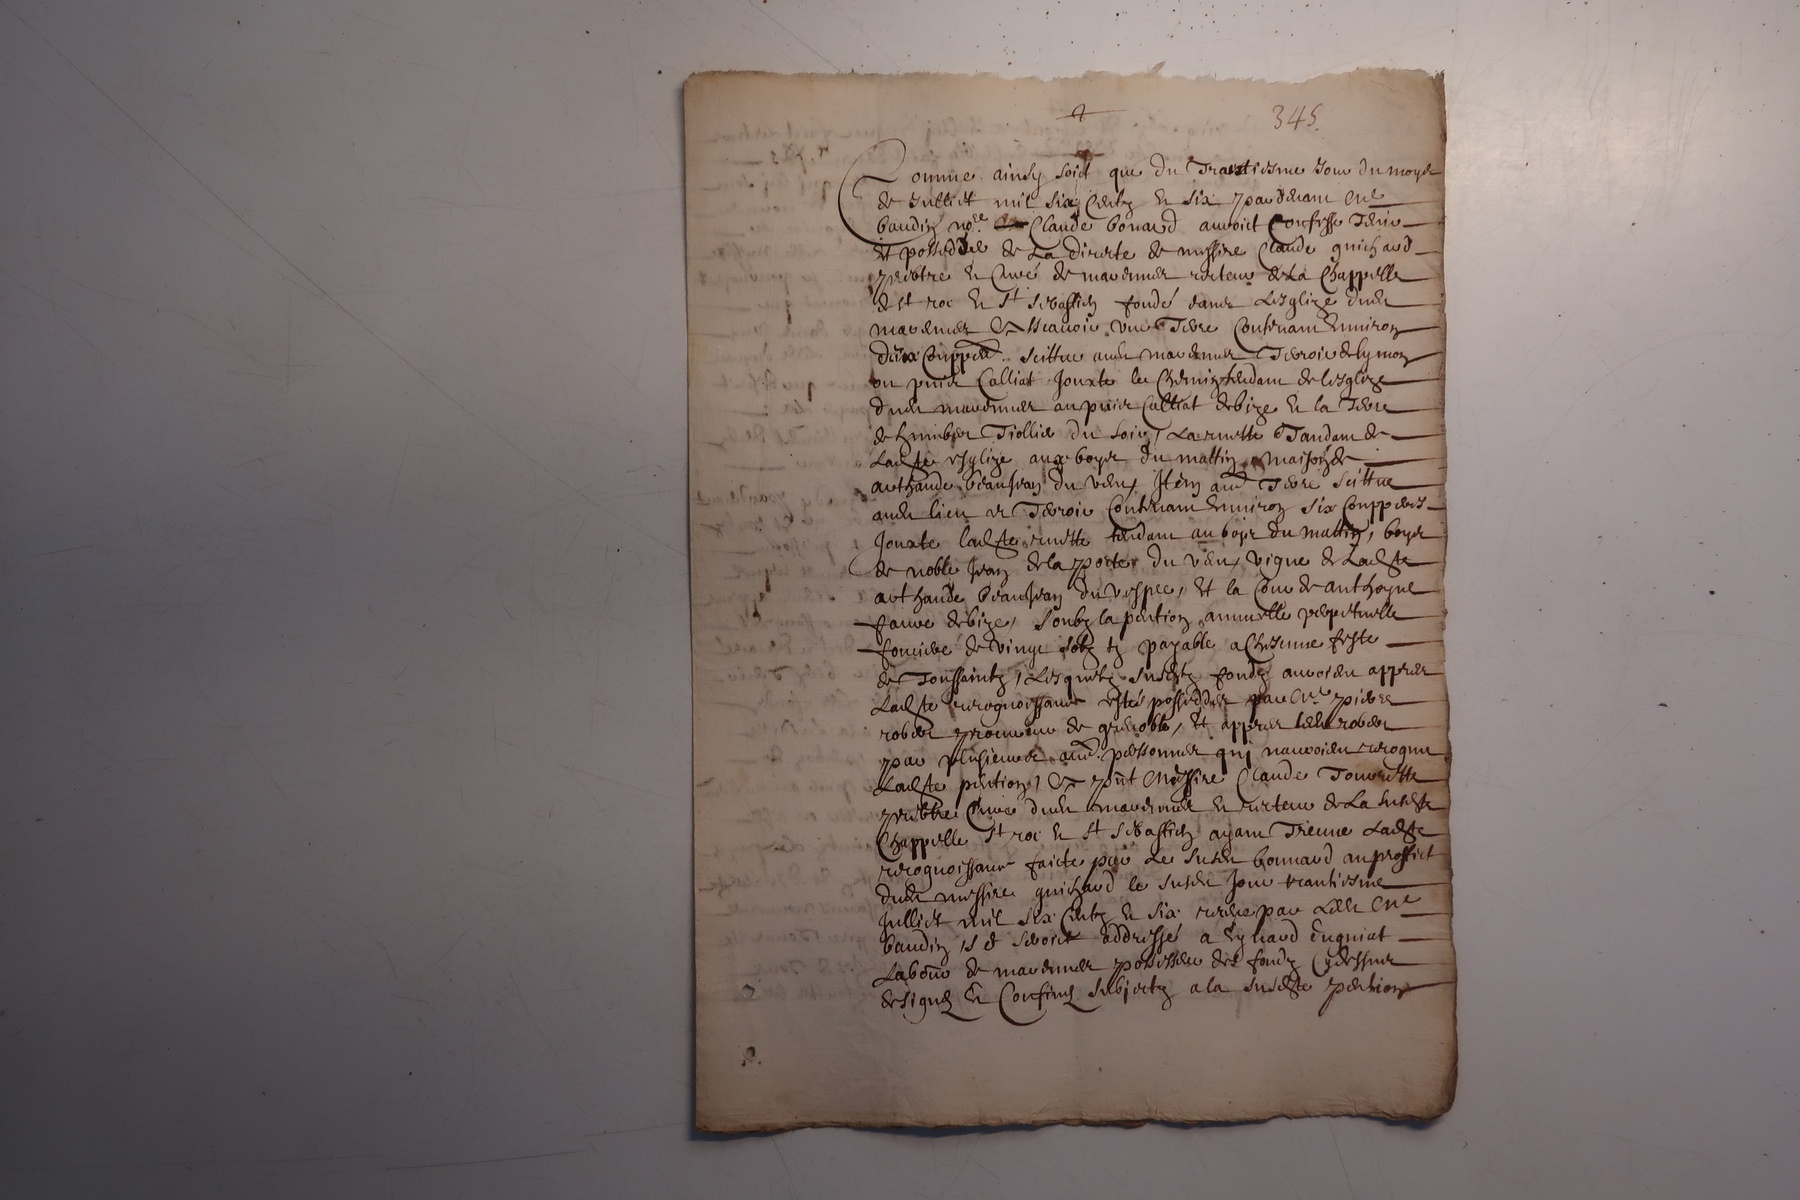 345.
Comme ainsy soict que du Trantiesme Jour du moys
de Julliet mil six Centz et six par devant Me
baudin nore Claude bonard auroict Confessé Tenir
et posseder de La directe de messire Claude guichard
prebtre et Curé de recteur de La Chappelle
de St roc et St Sebastien fondé dans Lesglize dud
Ascavoir une Terre Contenant Environ
dix Couppées scittue aud Terroir de
ou puis Calliat Jouxte le Chemin tendant de lesglize
dud au puis Calliat de bize et la Terre
de humber Tiollier du soir, La ruette Tandant de
Ladte esglize aux boyes du mattin maison de
anthande beaujean du vent, Item aude Terre scittue
aud lieu et Terroir Contenant Environ six Couppées
Jouxte ladte ruette tendant au boys du mattin, boys
de noble Jean de la porte du vent, vigne de Ladte
anthande beaujean du vespre, et la Cour de anthoyne
faure de bize, Soubz la pention annuelle perpetuelle
fonciere de vingt solz tz payable a Chescune feste
de Toussaintz, Lesquelz susdtz fondz auroient appres
Ladte recognoissance esté possedder par Me pierre
rober procureur de grenoble, Et appres led rober
par plusieurs aude personnes qui nauroient recognu
Ladte pention, Et pnt Messire Claude Tourette
prebtre Curé dud et recteur de La susdte
Chappelle St roc et St Sebastien ayant Treuvé Ladte
recognoissance faicte par Le susd bonnard au proffict
dud messire guichard le susd Jour trantiesme
Julliet mil six Centz et six receue par Led Me
baudin, Il se seroict addressé a
Labour de possesseur des fondz Cydessus
designez et Confinez subjectz a la susdte pention